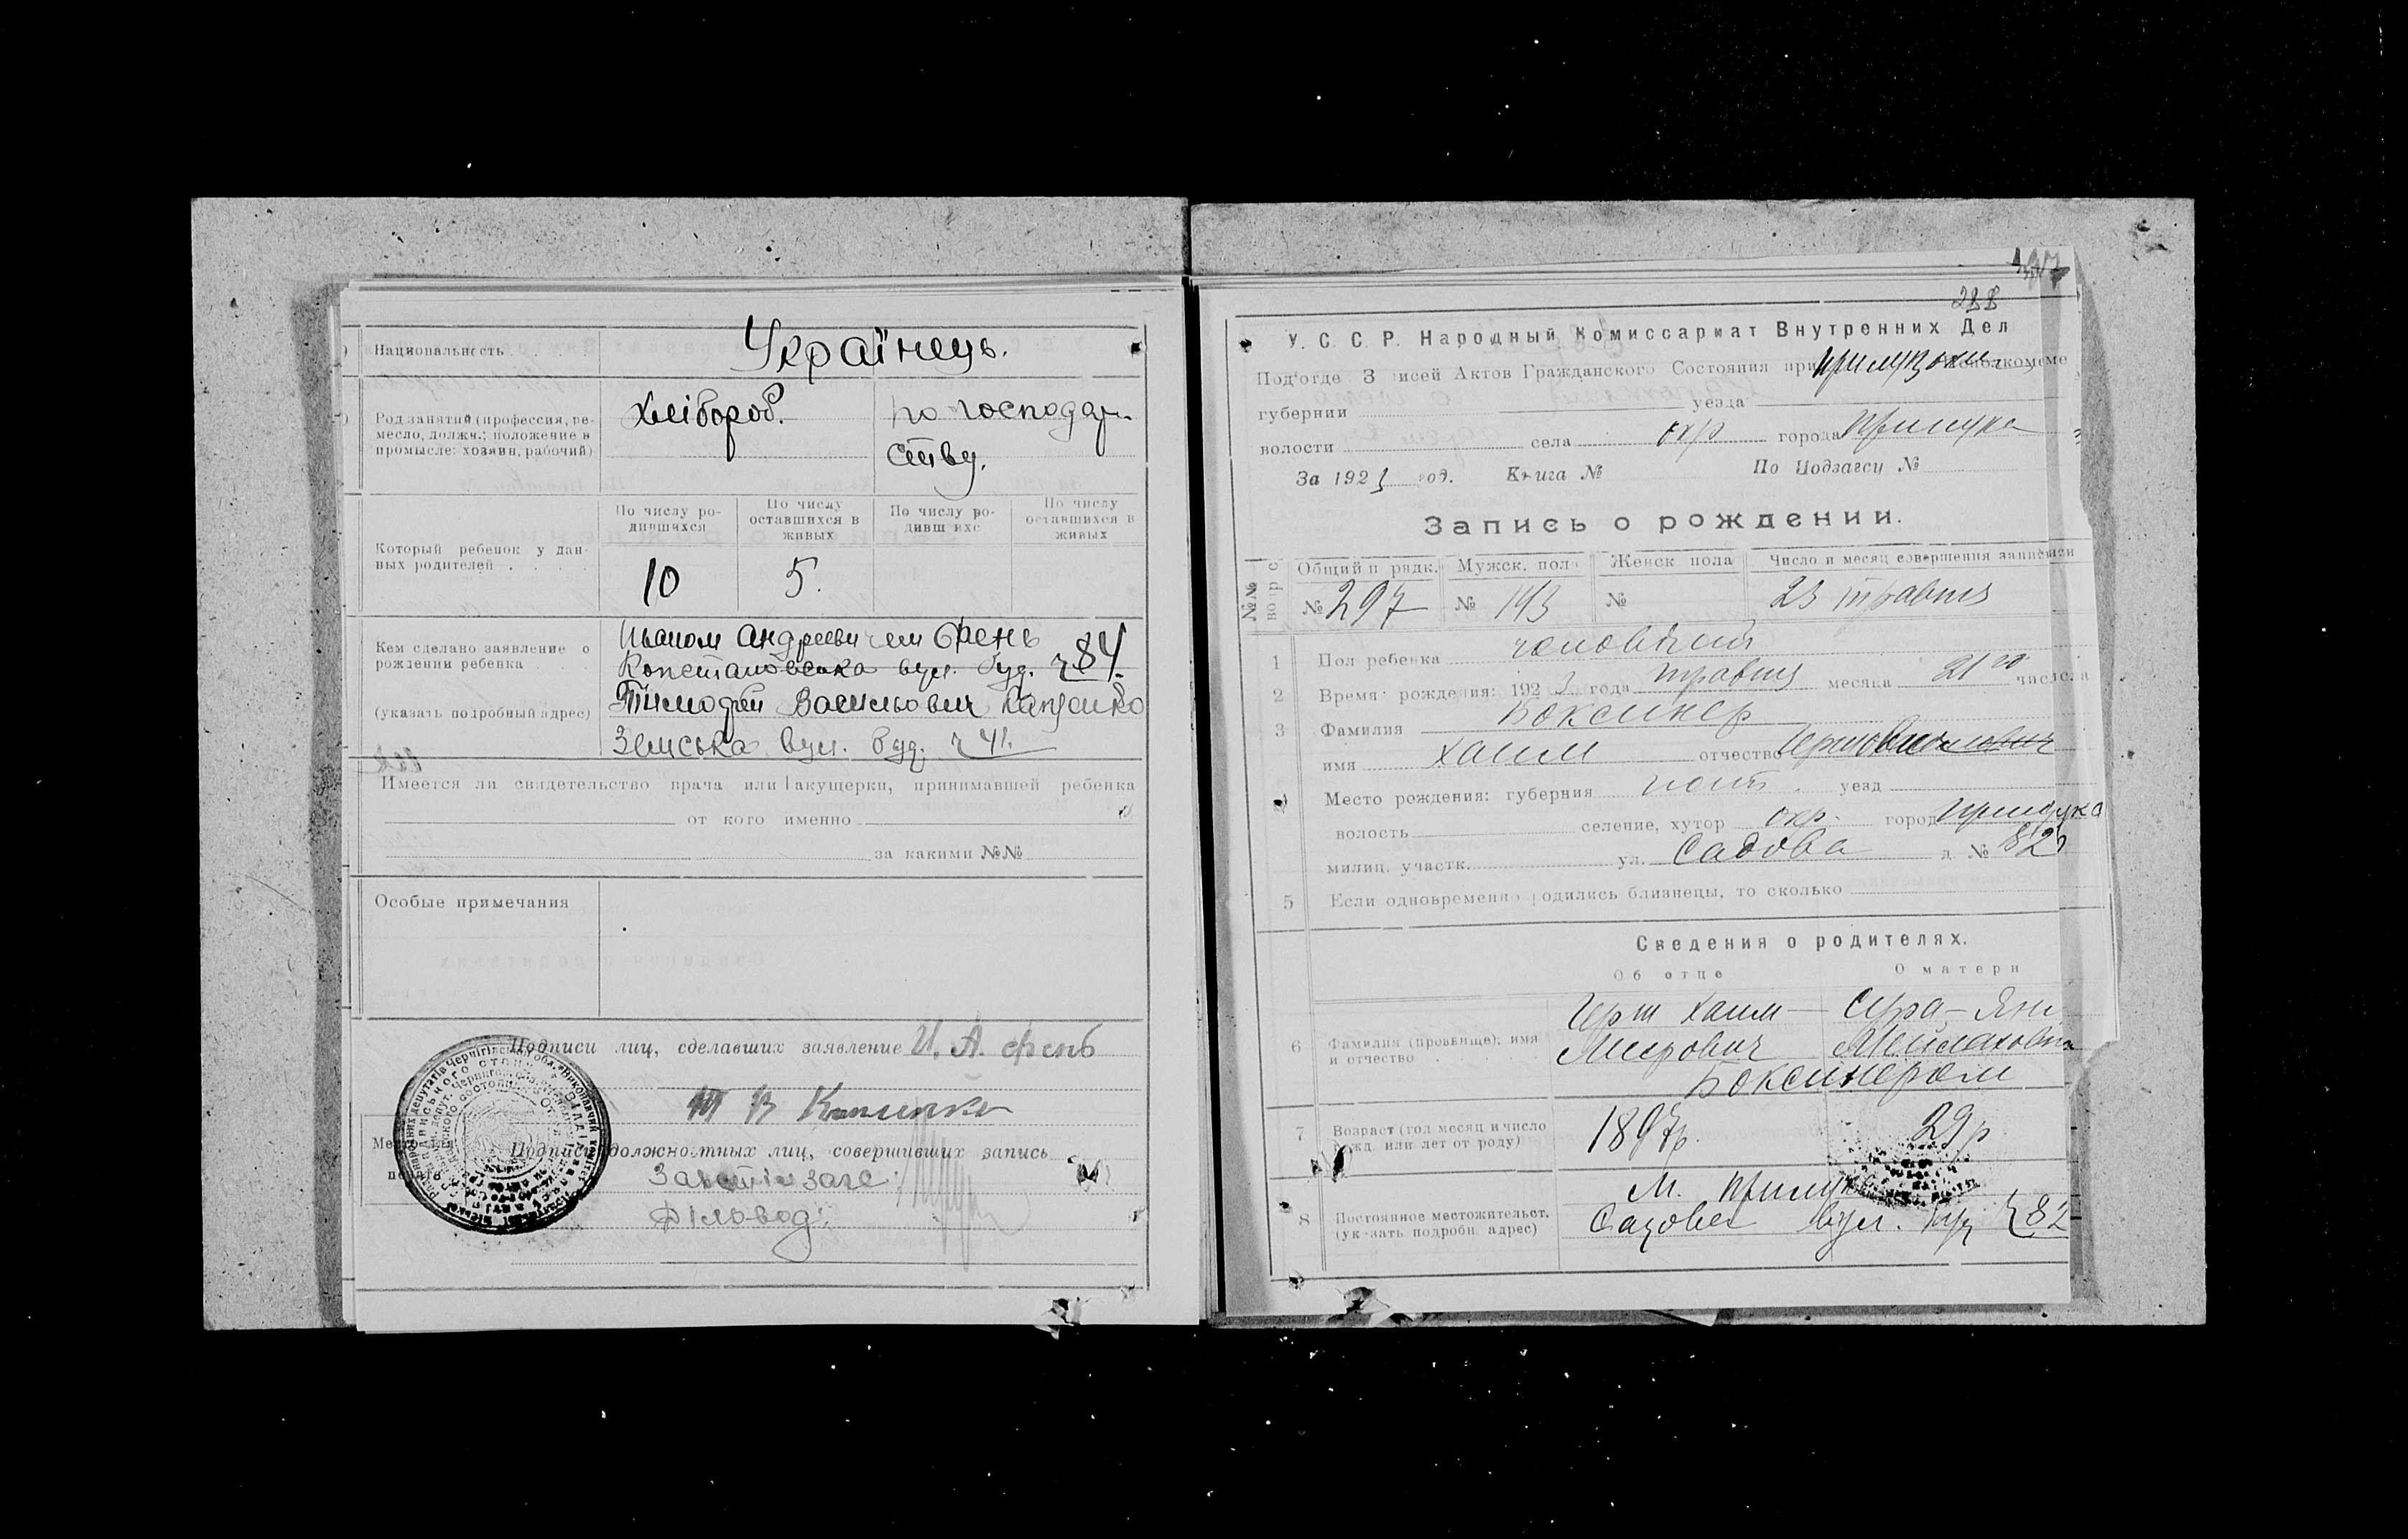 Национальность
Українець.
Род занятий (профессия, ре-
месло, должн.; положение в
промысле: хозяин, рабочий)
Хлібороб.
по господар-
ству.
По числу ро-
дившихся
По числу
оставшихся в
живых
По числу ро-
дивш ихс
По числу
оставшихся в
живых
Который ребенок у дан-
ных родителей . . . .
10
5.
Кем сделано заявление о
рождении ребенка . . .
(указать подробный адрес)
Иваном Андреевичем
вул. буд. ч 84.
Тимофій Васильович
Земська вул. буд. ч 41.
Имеется ли свидетельство врача или акушерки, принимавшей ребенка
от кого именно
за какими №№
Особые примечания
Подписи лиц, сделавших заявление И. А.
Подписи должностных лиц, совершивших запись
Діловод:
288
У. С. С. Р. Народный Комиссариат Внутренних Дел
Под'отде З исей Актов Гражданского Состояния при исполкоме
губернии уезда
волости села окр города Прилука
За 1923 год. Книга № По Подзагсу №
Запись о рождении.
№№
Общий п рядк. Мужск. пол Женск пола Число и месяц совершения записи
№ 297 № 143 № 23 травня
1 Пол ребенка чоловічий
2 Время рождения: 1923 года травня месяца 21 го числа
3 Фамилия Боксинер
имя Хаим отчество
4 Место рождения: губерния полт. уезд
волость селение, хутор окр. город Прилука
милиц. участк. ул. Садова д № 82
5 Если одновременно родились близнецы, то сколько
Сведения о родителях.
Об отце О матери
6 Фамилия (прозвище), имя
и отчество . .
Герш Хаим
Меерович
Сура-
Мейлаховна
7 Возраст (год месяц и число
рожд. или лет от роду)
1897р.
29 р.
8 Постоянное местожительст.
(указать подробн адрес)
М. Прилука
Садова вул. буд ч 82